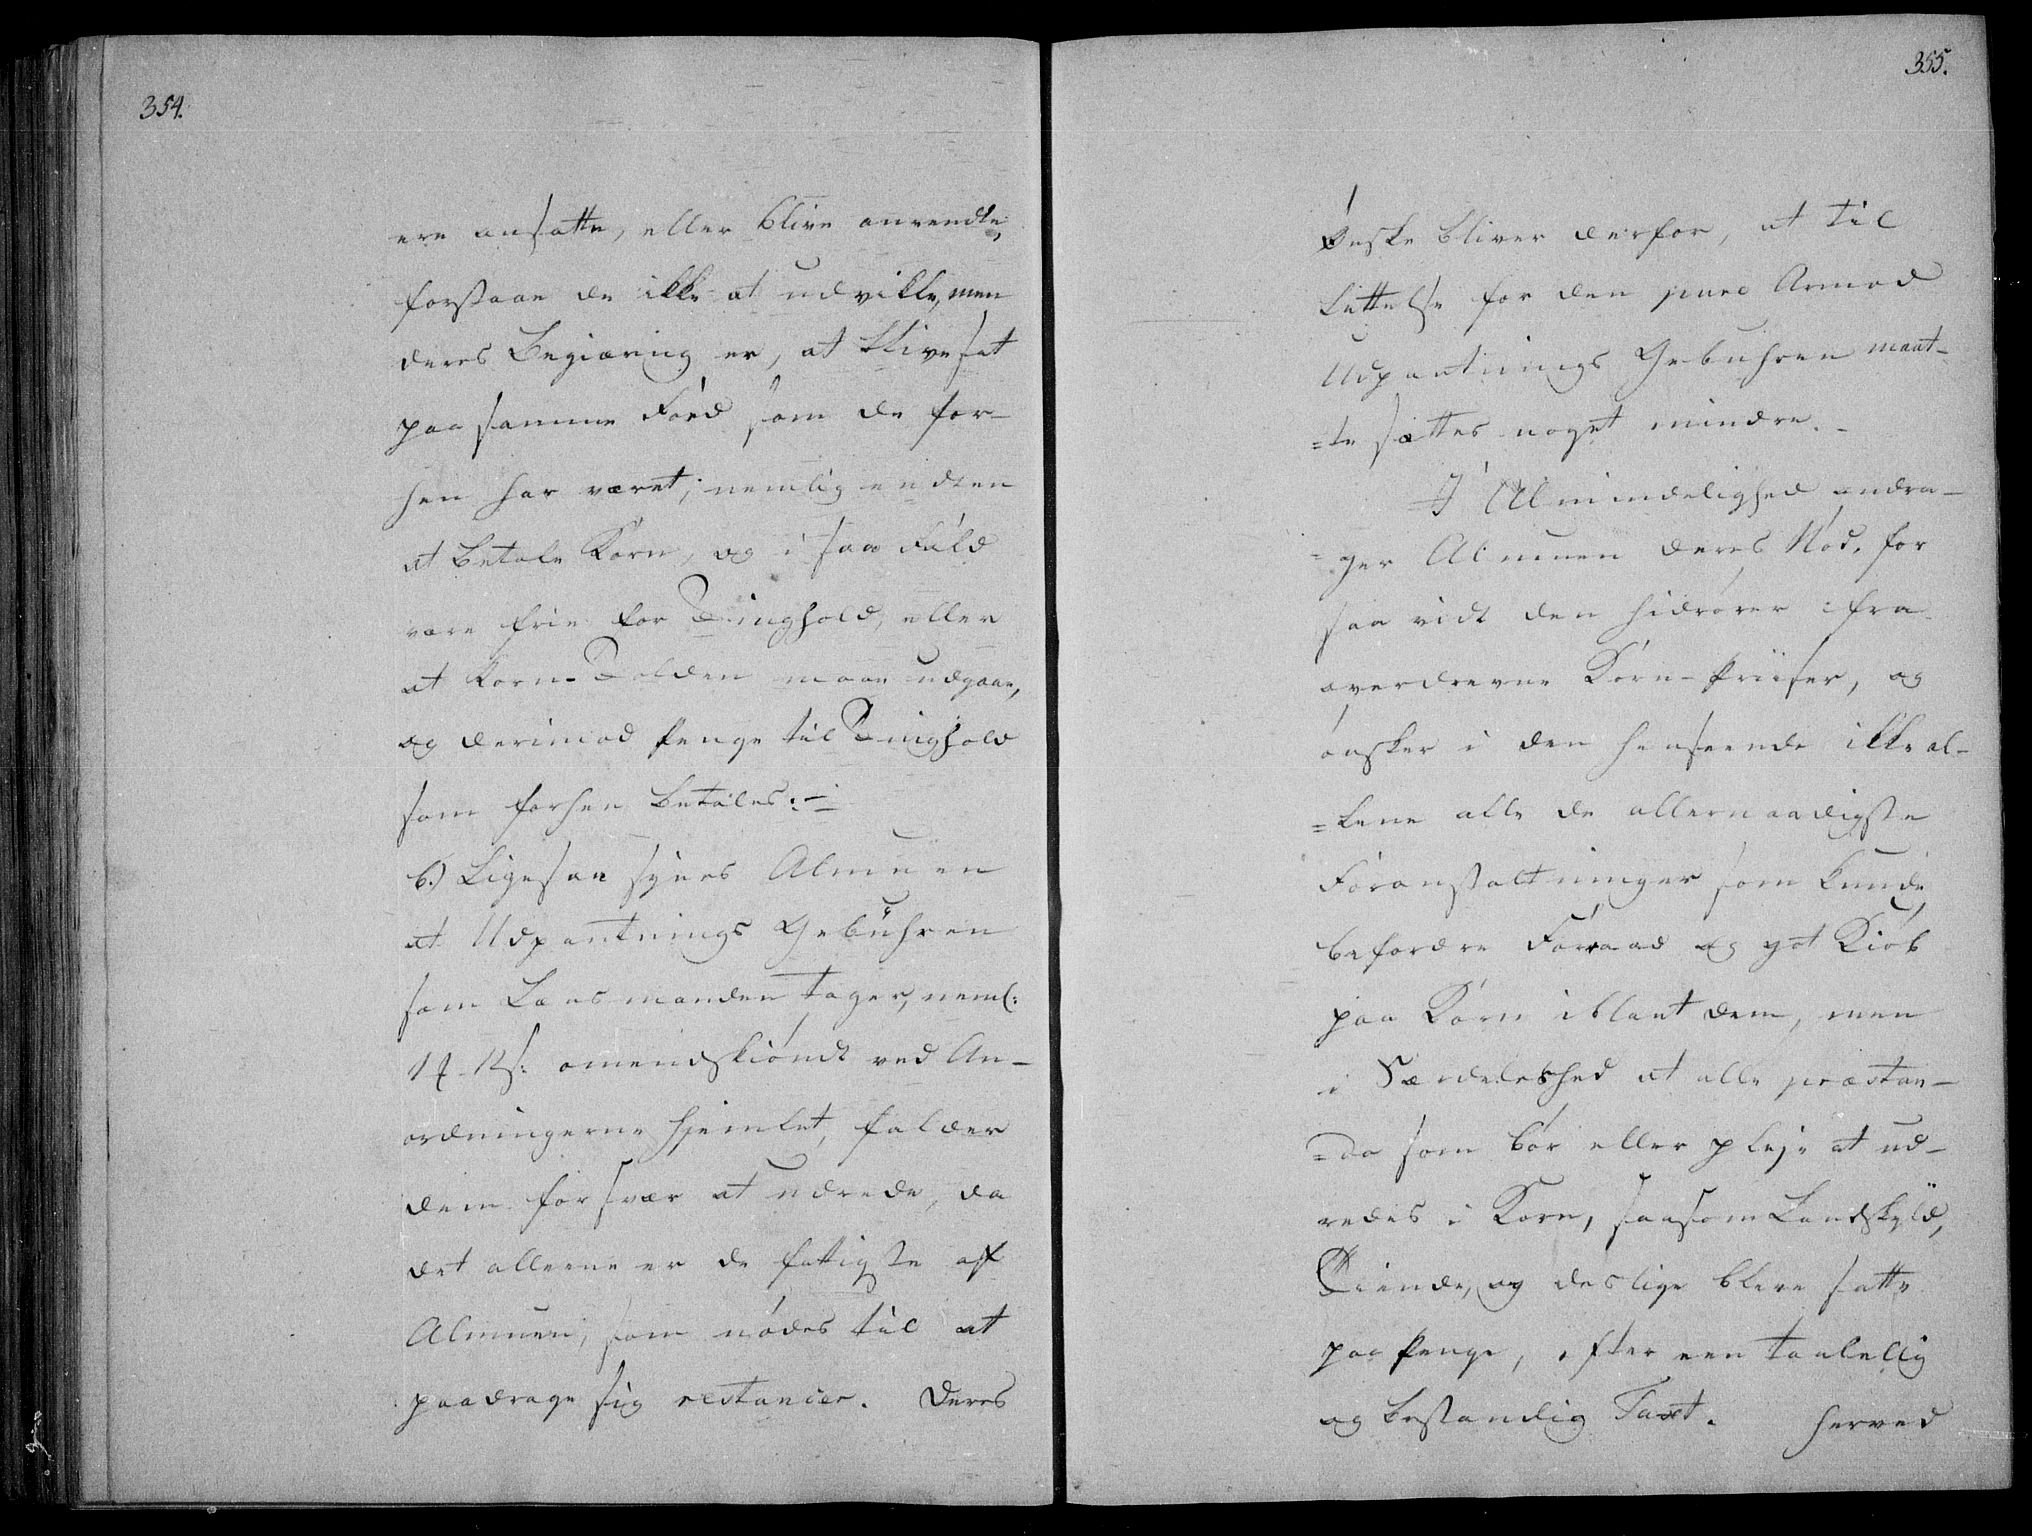 354.
ere ansatte, eller blive anvendte,
forstaae de ikke at udvikle, men
deres Begiæring er, at blive sat
paa samme Foed som de for-
hen har været; nemlig endten
at betale Korn, og i saa Fald
være frie for Tinghold, eller
at Korn-Tolden maae udgaae,
og derimod Penge til Tinghold
som forhen betales.-
b.) Ligesaa synes Almuen
at Udpantnings Gebühren
som Lensmanden tager, neml:
omendskiöndt ved An-
ordningerne hjemlet, falder
dem for svær at udrede, da
det allerne er de fattigste af
Almuen, som nödes til at
paadrage sig restancer. Deres
355.
Önske bliver derfor, at til
Lettelse for den pure Armod
Udpantnings Gebuhren maat-
=te sættes noget mindre.-
I Almindelighed andra-
=ger Almuen deres Nöd, for
saa vidt den hidrörer ifra
overdrevne Korn-Priiser, og
önsker i den henseende ikke al-
=lene alle de allernaadigste
Foranstaltninger som kunde
befordre Forraad og got Kiöb
paa Korn iblant dem, men
i Særdeleshed at alle præstan-
=da som bör eller pleje at ud-
redes i Korn, saasom Landskyld,
Tiende, og deslige bleve satte
paa Penge, efter een taalelig
og bestandig Taxt. Herved